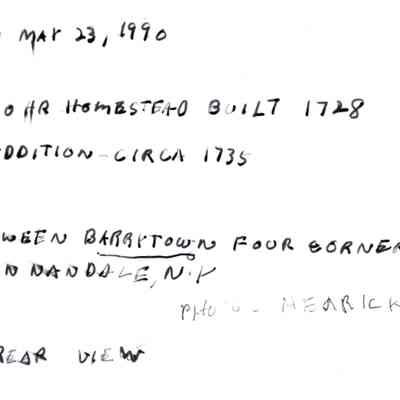 MAY 23, 1990
OHR HOMESTEAD BUILT 1728
DDITION-CIRCA 1735
WEEN BARRYTOWN FOUR CORNER
N NANDALE, N.Y
PHOTO - HERRICK
REAR VIEW